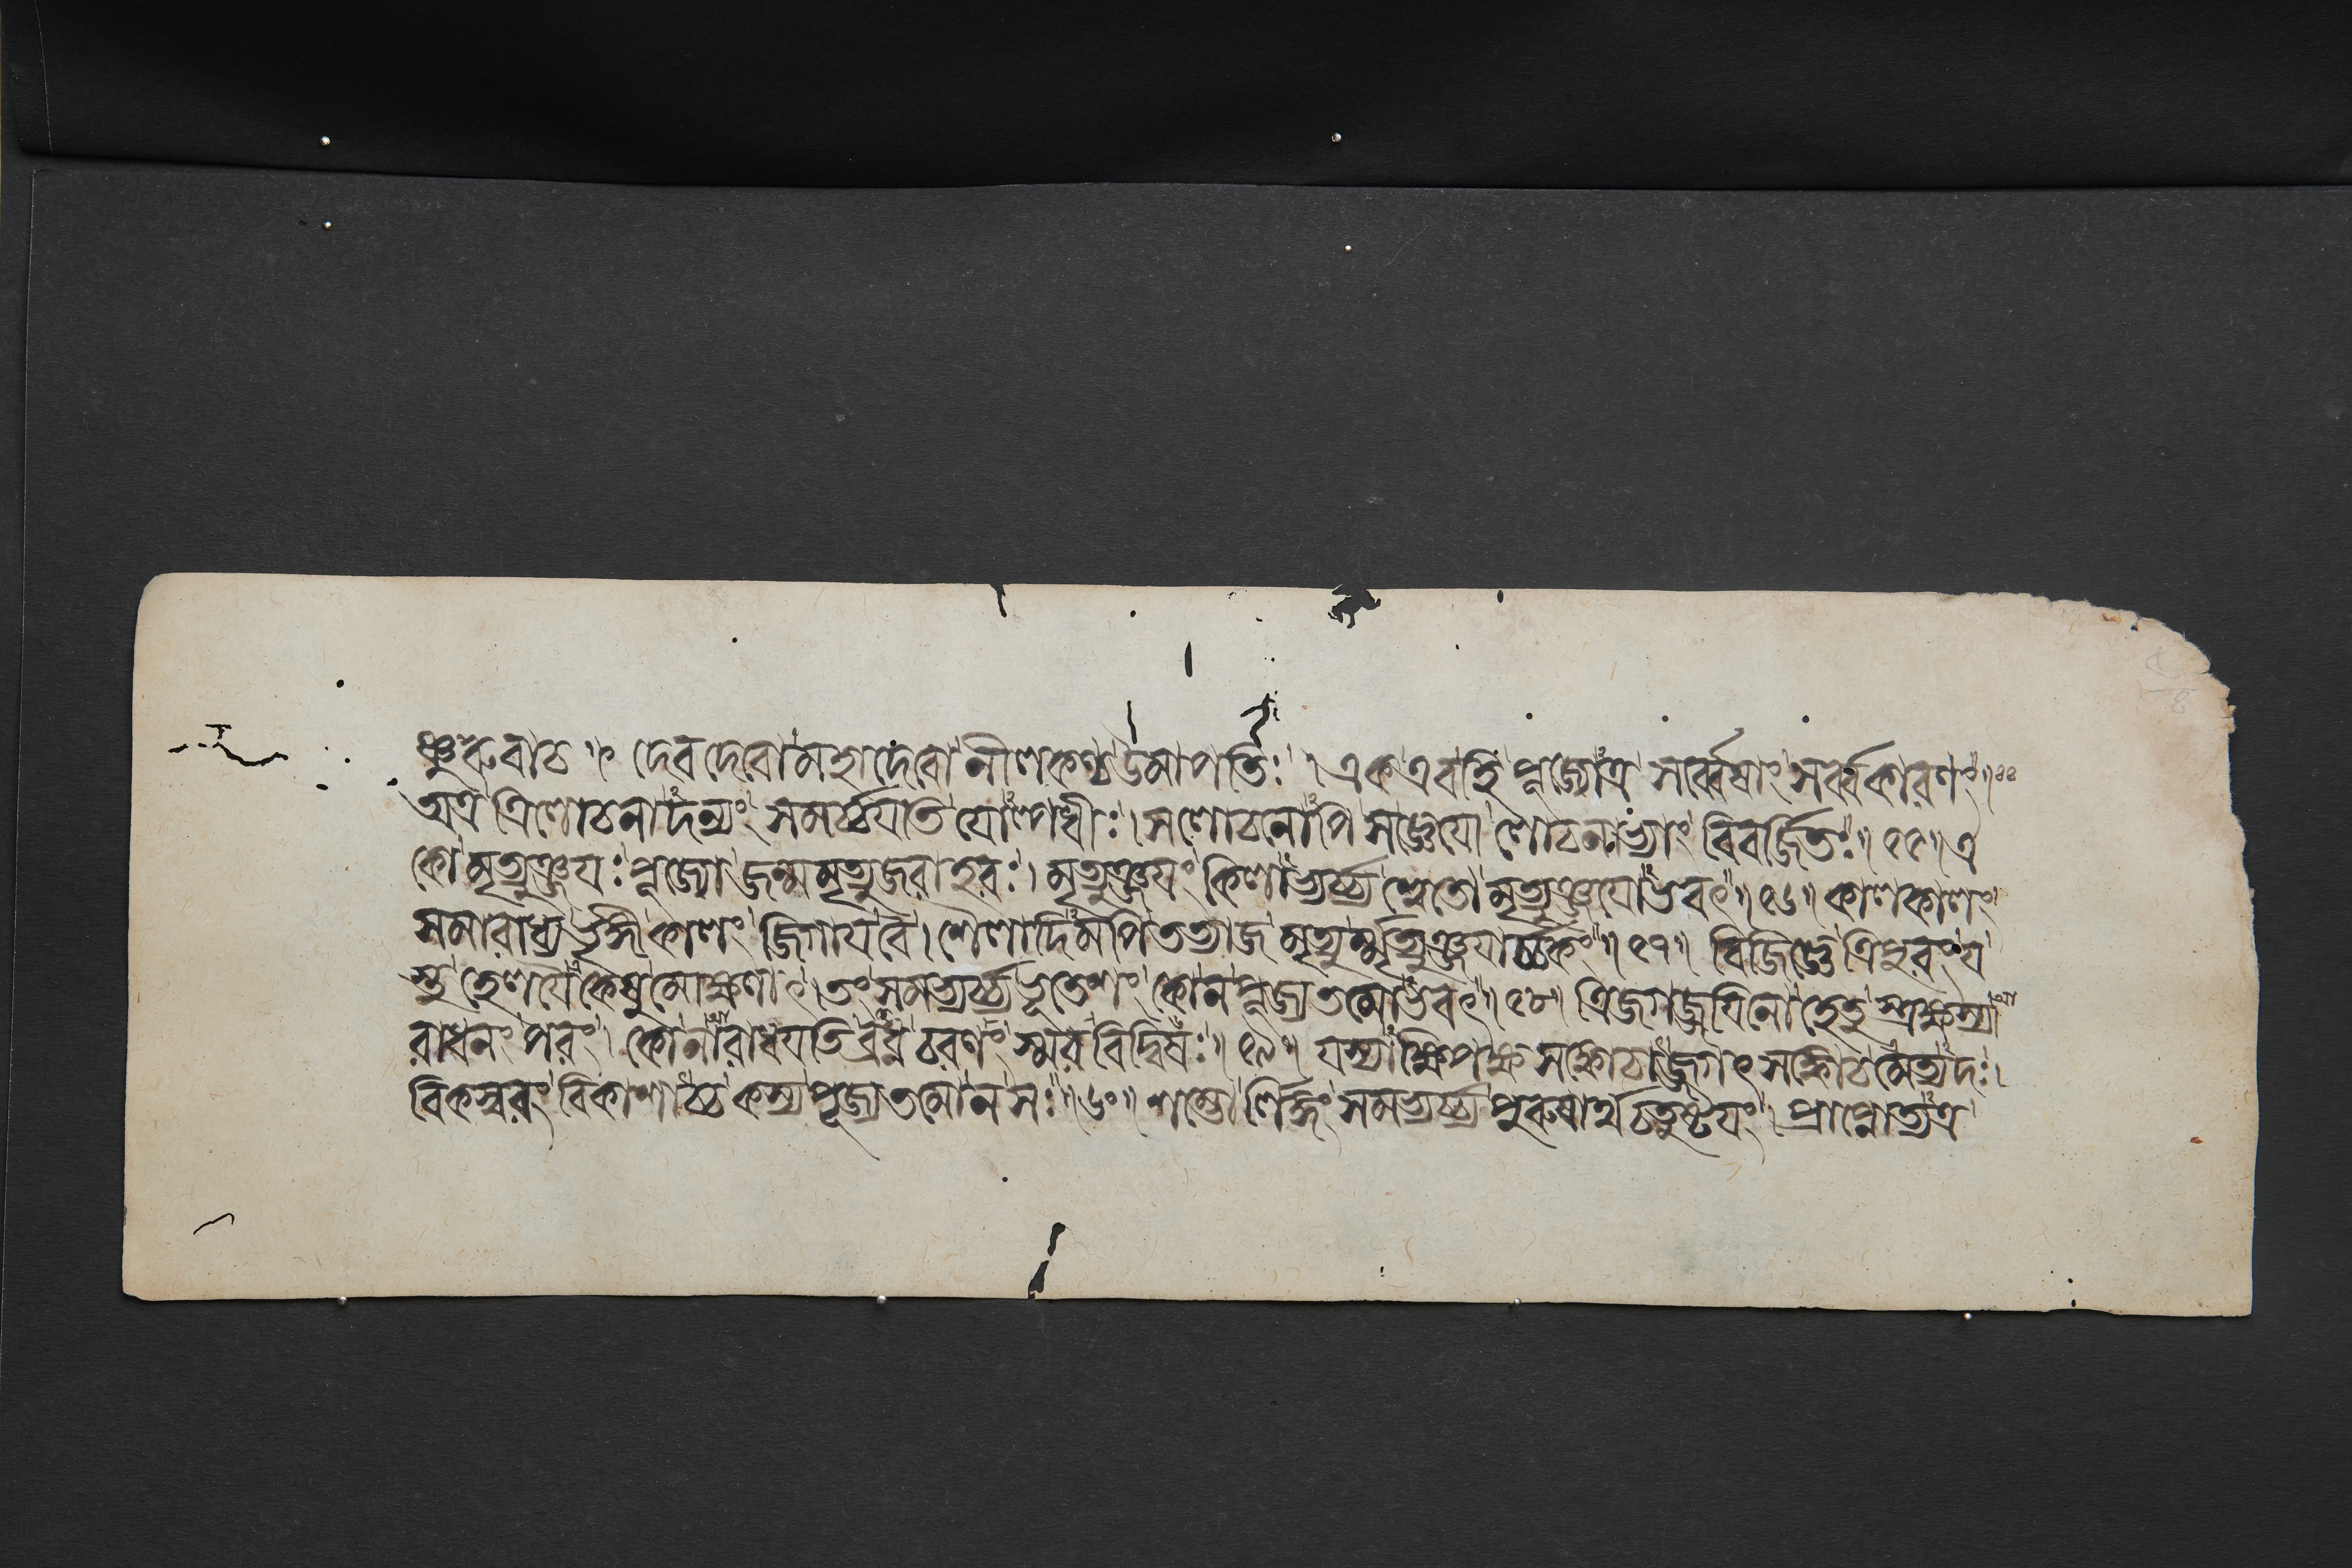 ঞ্চুরুবাচ ॥ দেবদেবো মহাদেবো নীলকণ্ঠ উমাপতিঃ। এক এব হি পূজ্যোত্র সর্ব্বেষাং সর্ব্বকারণং॥
অত্র ত্রিলোচনাদন্যং সমর্চ্চযতি যোল্পধীঃ। সলোচনোপি সজ্ঞেযো লোচনাভ্যাং বিবর্জ্জিতঃ॥৫৫॥ এ
কো মৃত্যুঞ্জযঃ পূজ্যো জন্মমৃত্যুজরাহরঃ। মৃত্যুঞ্জযং কিলাভ্যর্চ্চ্য শ্বেতো মৃত্যুঞ্জযোভবৎ॥৫৬॥ কালকালং
সমারাধ্য ভৃঙ্গী কালং জিগায বৈ। শৈলাদিমপি তত্যাজ মৃত্যুর্মৃত্যুঞ্জযার্চ্চকং॥৫৭॥ বিজিগ্যে ত্রিপুরং য
স্তু হেলযৈকেষুমোক্ষণাৎ। তং সমভ্যর্চ্চ্য ভূতেশং কো ন পূজ্যতমো ভবেৎ॥৫৮॥ ত্রিজগজ্জযিনো হেতুস্ত্র্যক্ষস্যা
রাধনং পরং। কো নারাধযতি ব্রধ্ন চরণং স্মরবিদ্বিষঃ॥৫৯॥ যস্যাক্ষিপক্ষ্মসঙ্কোচাজ্জগৎ সঙ্কোচমেত্যদঃ।
বিকস্বরং বিকাশাচ্চ কস্য পূজ্যতমো ন সঃ॥৬০॥ শম্ভোর্লিঙ্গং সমভ্যর্চ্চ্য পুরুষার্থচতুষ্টযং। প্রাপ্নোত্যত্র